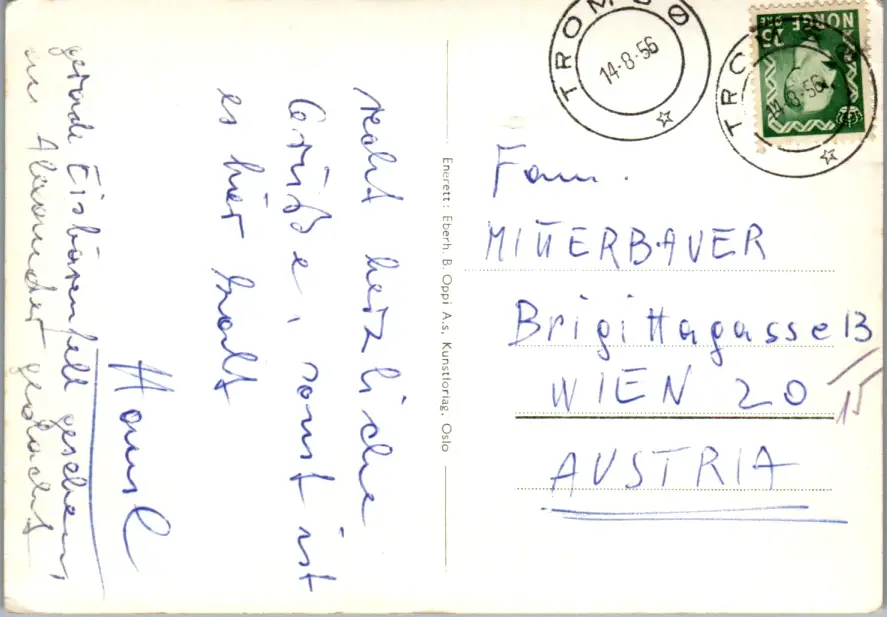 recht herzliche
Grüße, sonst ist
es hier kalt
Hansl
gerade Eisbärenfell gesehen,
an Alexander gedacht
Enerett: Eberh. B. Oppi A.s. Kunstforlag, Oslo
TROMSØ
14-8-56
TRO
8-56
NORGE
25 ØRE
Fam.
MITTERBAUER
Brigittagasse 13
/15
WIEN 20
AUSTRIA